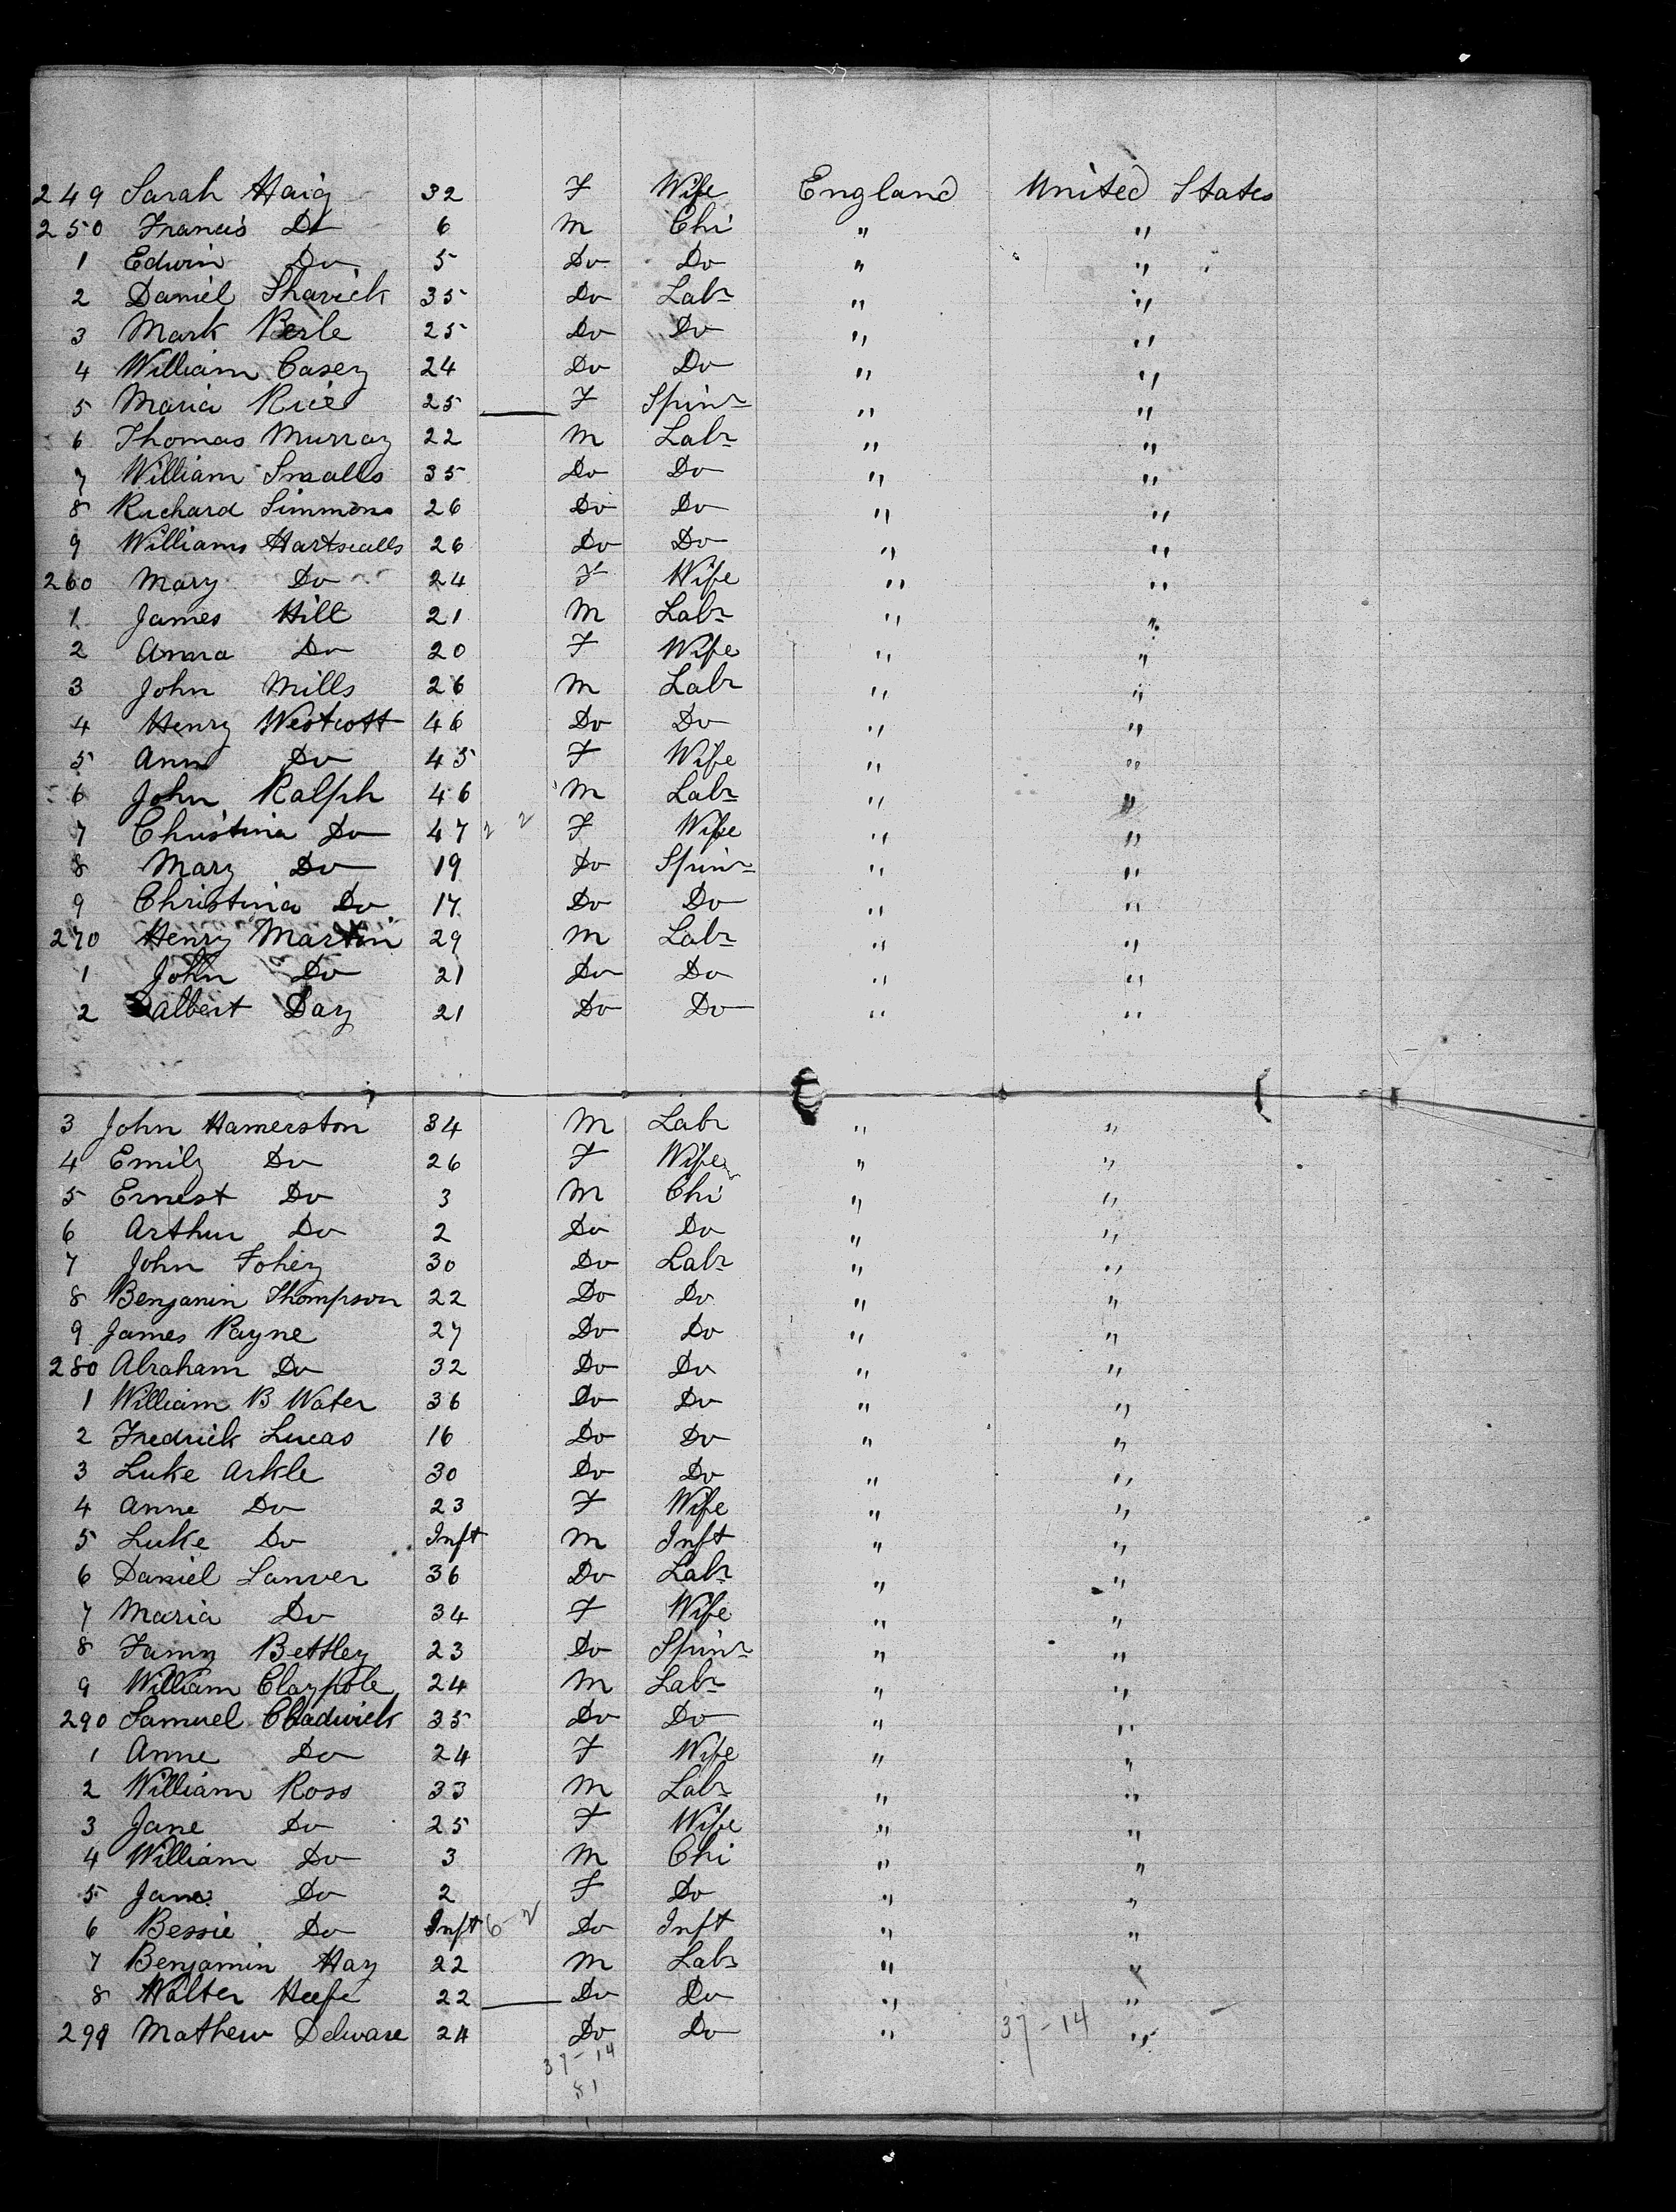 249 Sarah Haig 32 F Wife England United States
250 Francis Do 6 M Chi " "
1 Edwin Do 5 Do Do " "
2 Daniel Sharick 35 Do Labr " "
3 Mark Berle 25 Do Do " "
4 William Casey 24 Do Do " "
5 Maria Rice 25 F Spinr " "
6 Thomas Murray 22 M Labr " "
7 William Smalls 35 Do Do " "
8 Richard Simmons 26 Do Do " "
9 Williams 26 Do Do " "
260 Mary Do 24 F Wife " "
1 James Hill 21 M Labr " "
2 Anna Do 20 F Wife " "
3 John Mills 26 M Labr " "
4 Henry Westcott 46 Do Do " "
5 Ann Do 45 F Wife " "
6 John Ralph 46 M Labr " "
7 Christina Do 47 2 2 F Wife " "
8 Mary Do 19 Do Spinr " "
9 Christina Do 17 Do Do " "
270 Henry Martin 29 M Labr " "
1 John Do 21 Do Do " "
2 Albert Day 21 Do Do " "
3 John Hamerston 34 M Labr " "
4 Emily Do 26 F Wife " "
5 Ernest Do 3 M Chi " "
6 Arthur Do 2 Do Do " "
7 John Fohey 30 Do Labr " "
8 Benjanin Thompson 22 Do Do " "
9 James Payne 27 Do Do " "
280 Abraham Do 32 Do Do " "
1 William B Water 36 Do Do " "
2 Fredrick Lucas 16 Do Do " "
3 Luke Arkle 30 Do Do " "
4 Anne Do 23 F Wife " "
5 Luke Do Inft M Inft " "
6 Daniel Lanver 36 Do Labr " "
7 Maria Do 34 F Wife " "
8 Fanny Bettley 23 Do Spinr " "
9 William Claypole 24 M Labr " "
290 Samuel Chadwick 35 Do Do " "
1 Anne Do 24 F Wife " "
2 William Ross 33 M Labr " "
3 Jane Do 25 F Wife " "
4 William Do 3 M Chi " "
5 Jane Do 2 F Do " "
6 Bessie Do Inft 6-2 Do Inft " "
7 Benjamin Hay 22 M Labr " "
8 Walter 22 Do Do " "
299 Mathew Delware 24 Do Do " 37-14 "
37-14
81